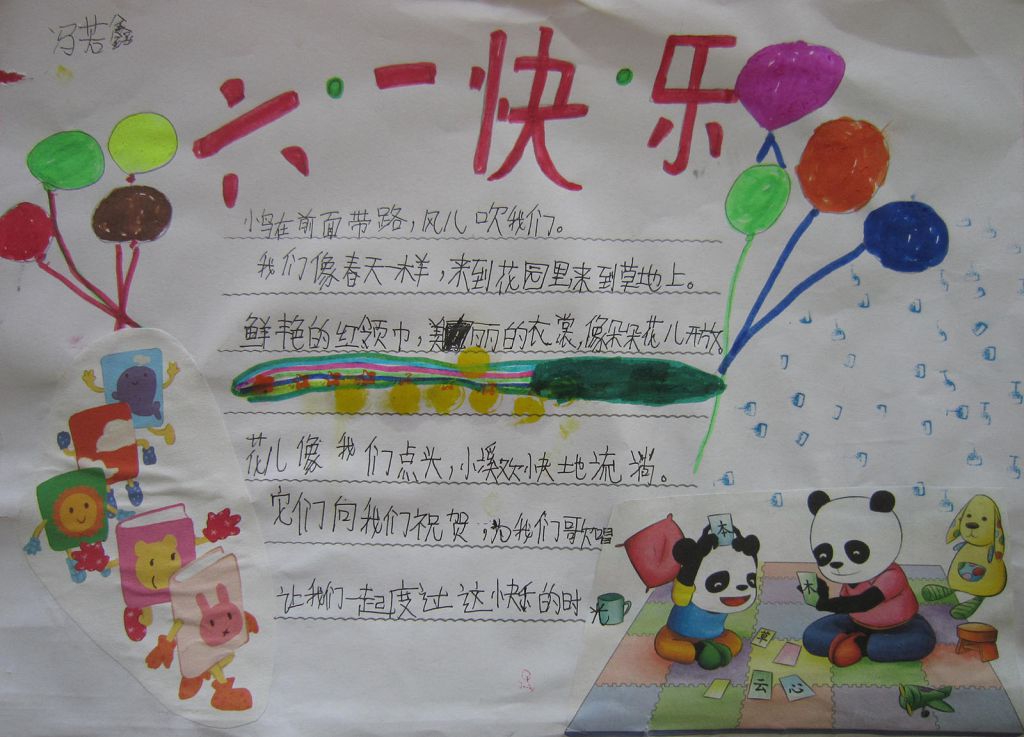 冯若鑫
六·一快·乐
小鸟在前面带路，风儿吹我们。
我们像春天一样，来到花园里来到草地上。
鲜艳的红领巾，美丽的衣裳，像朵朵花儿开放。
花儿像我们点头，小溪欢快地流淌。
它们向我们祝贺，为我们歌唱
让我们一起度过这快乐的时光
本
木
草
云 心